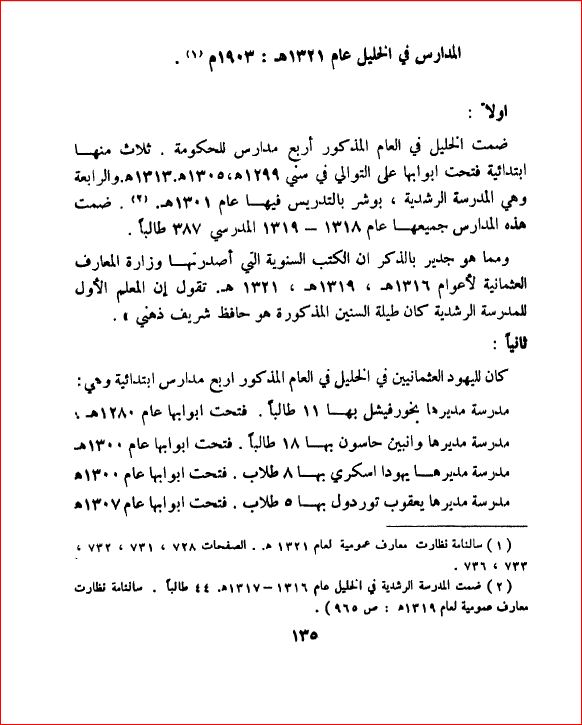 المدارس في الخليل عام ١٣٢١هـ : ١٩٠٣م (١) .
اولاً :
ضمت الخليل في العام المذكور أربع مدارس للحكومة . ثلاث منهـــا
ابتدائية فتحت ابوابها على التوالي في سني ١٢٩٩هـ،١٣٠٥هـ.١٣١٣هـ.والرابعة
وهي المدرسة الرشدية ، بوشر بالتدريس فيهـا عام ١٣٠١هـ. (٢) . ضمت
هذه المدارس جميعهـــا عام ١٣١٨ – ١٣١٩ المدرسي ٣٨٧ طالباً .
ومما هو جدير بالذكر ان الكتب السنوية التي أصدرتهـــا وزارة المعارف
العثمانية لأعوام ١٣١٦هـ ، ١٣١٩هـ ، ١٣٢١ هـ. تقول إن المعلم الأول
للمدرسة الرشدية كان طيلة السنين المذكورة هو حافظ شريف ذهني » .
ثانياً :
كان لليهود العثمانيين في الخليل في العام المذكور اربع مدارس ابتدائية وهي:
مدرسة مديرها بخورفيشل بهـــا ١١ طالباً . فتحت ابوابها عام ١٢٨٠هـ ،
مدرسة مديرها وانبين حاسون بهـــا ١٨ طالباً . فتحت ابوابها عام ١٣٠٠هـ
مدرسة مديرهـــا يهودا اسكري بهـــا ٨ طلاب . فتحت ابوابها عام ١٣٠٠هـ
مدرسة مديرها يعقوب توردول بهـــا ٥ طلاب . فتحت ابوابها عام ١٣٠٧هـ
(١) سالنامة نظارت معارف عمومية لعام ١٣٢١ هـ . الصفحات ٧٢٨ ، ٧٣١ ، ٧٣٢ ،
٧٣٣ ، ٧٣٦ .
(٢) ضمت المدرسة الرشدية في الخليل عام ١٣١٦–١٣١٧هـ. ٤٤ طالباً . سالنامة نظارت
معارف عمومية لعام ١٣١٩هـ : ص ٩٦٥) .
١٣٥